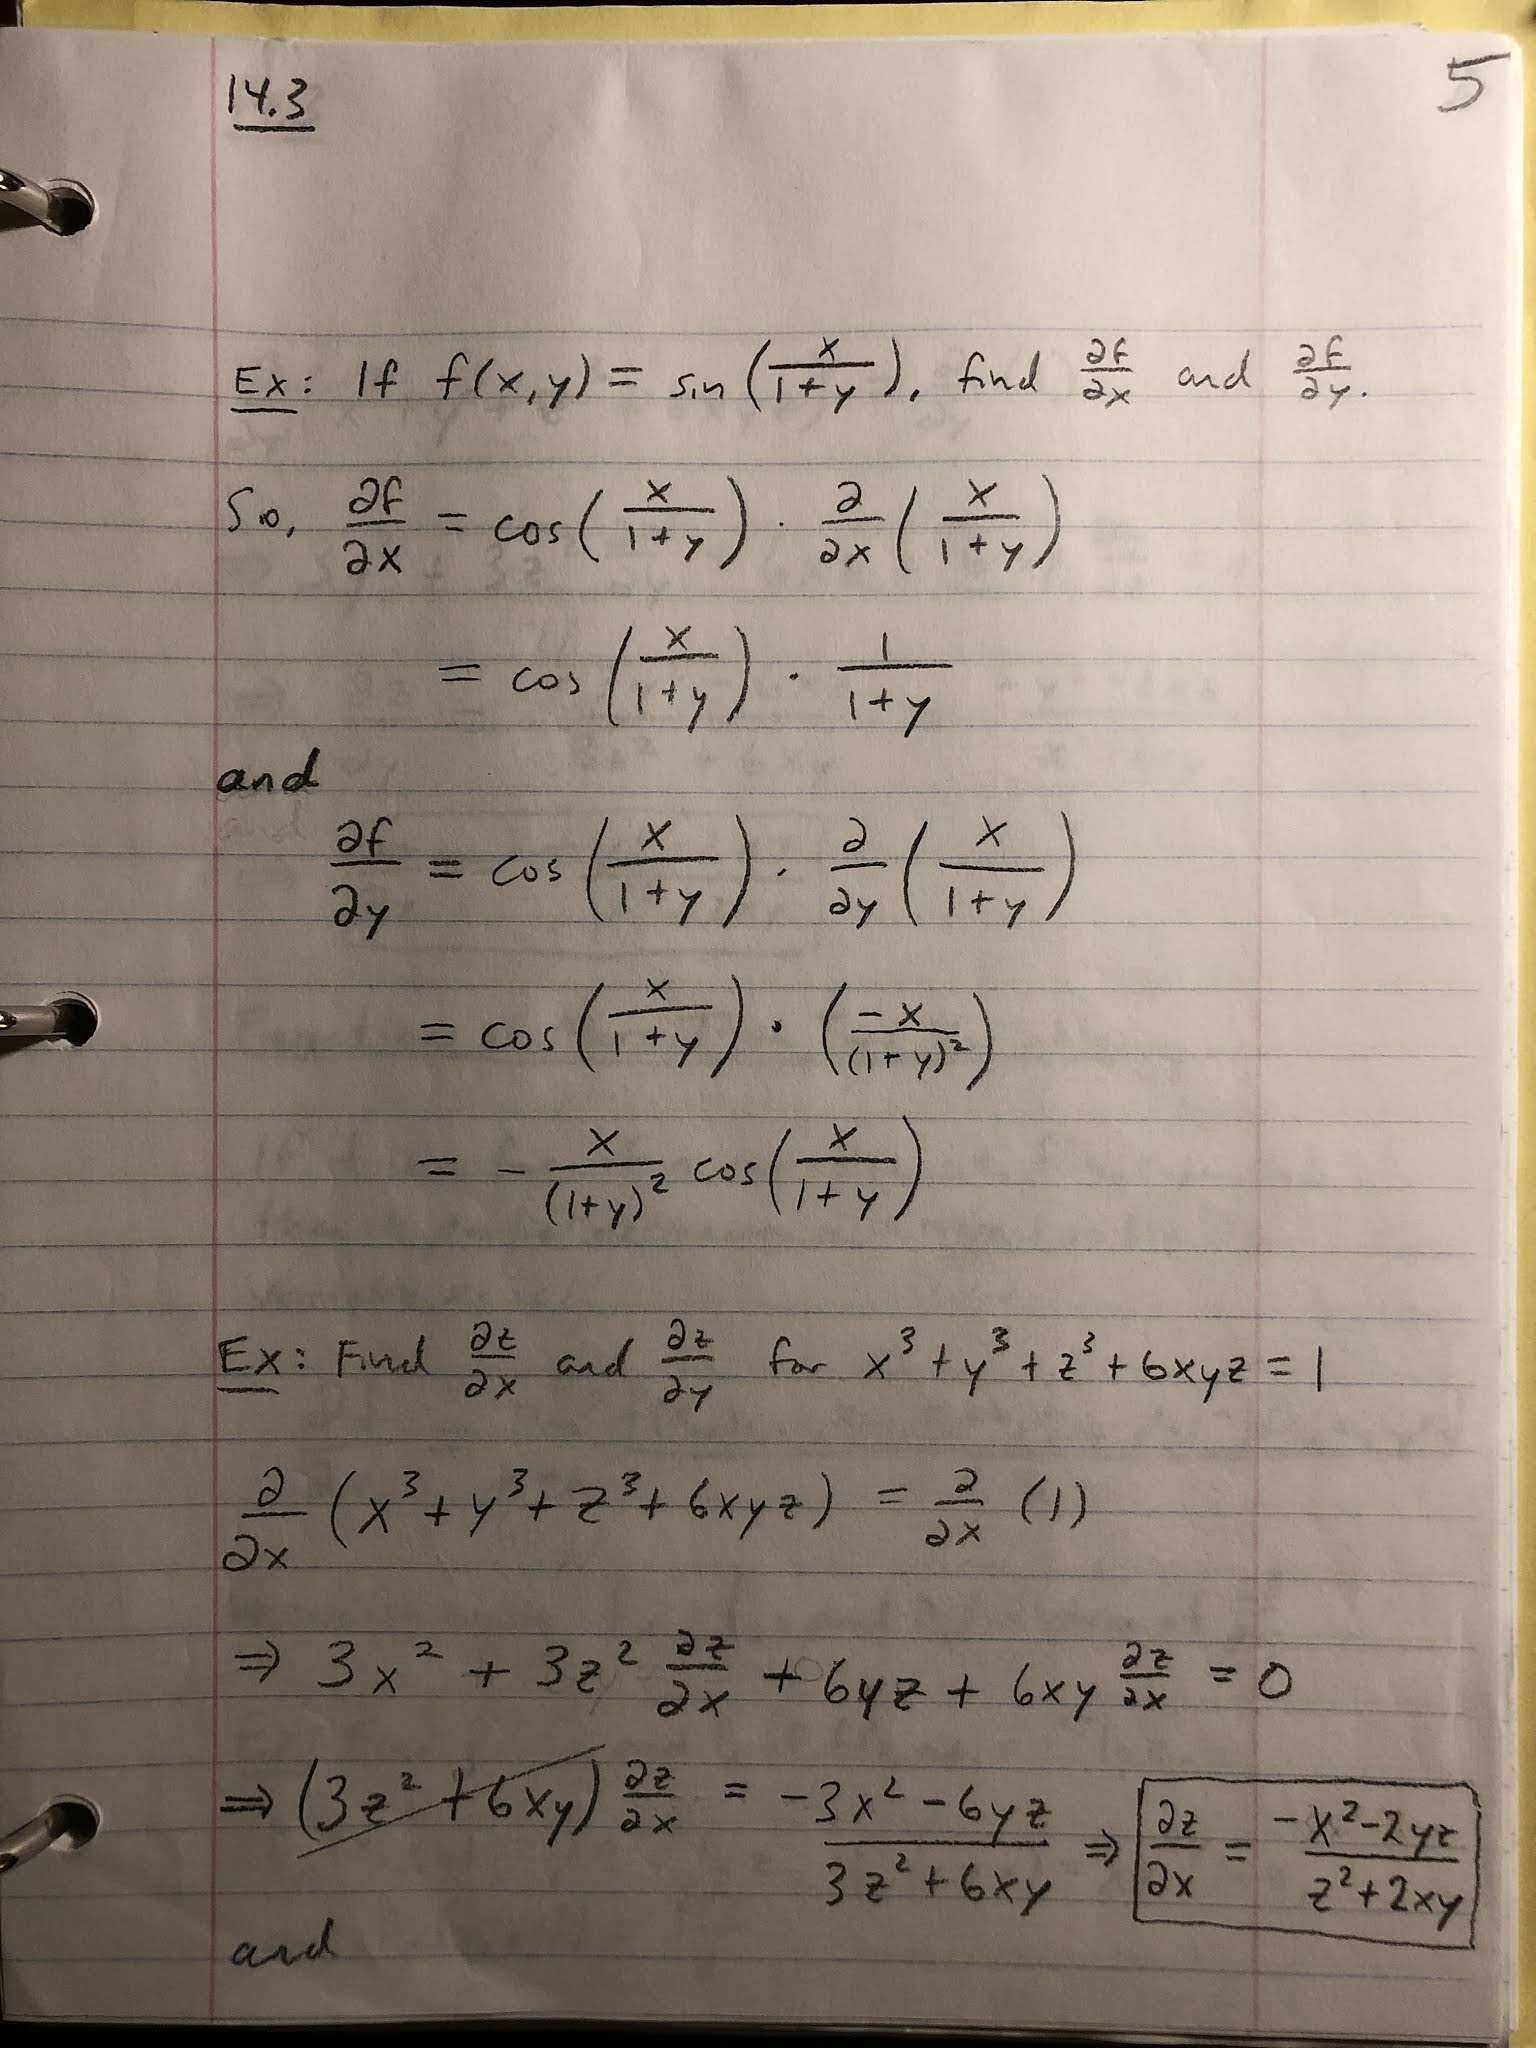 14.3
5
Ex: If f(x,y) = sin(x/(1+y)), find ∂f/∂x and ∂f/∂y.
So, ∂f/∂x = cos(x/(1+y)) · ∂/∂x (x/(1+y))
= cos(x/(1+y)) · 1/(1+y)
and
∂f/∂y = cos(x/(1+y)) · ∂/∂y (x/(1+y))
= cos(x/(1+y)) · (-x/(1+y)²)
= - x/(1+y)² cos(x/(1+y))
Ex: Find ∂z/∂x and ∂z/∂y for x³+y³+z³+6xyz = 1
∂/∂x (x³+y³+z³+6xyz) = ∂/∂x (1)
⇒ 3x² + 3z² ∂z/∂x + 6yz + 6xy ∂z/∂x = 0
⇒ (3z²+6xy) ∂z/∂x = (-3x²-6yz)/(3z²+6xy) ⇒ ∂z/∂x = (-x²-2yz)/(z²+2xy)
and